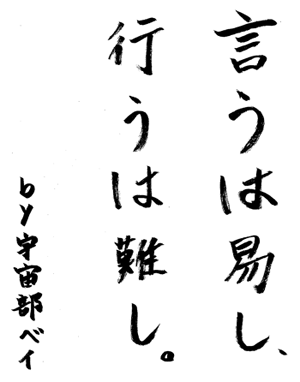 言うは易し、
行うは難し。
by宇宙部ベイ